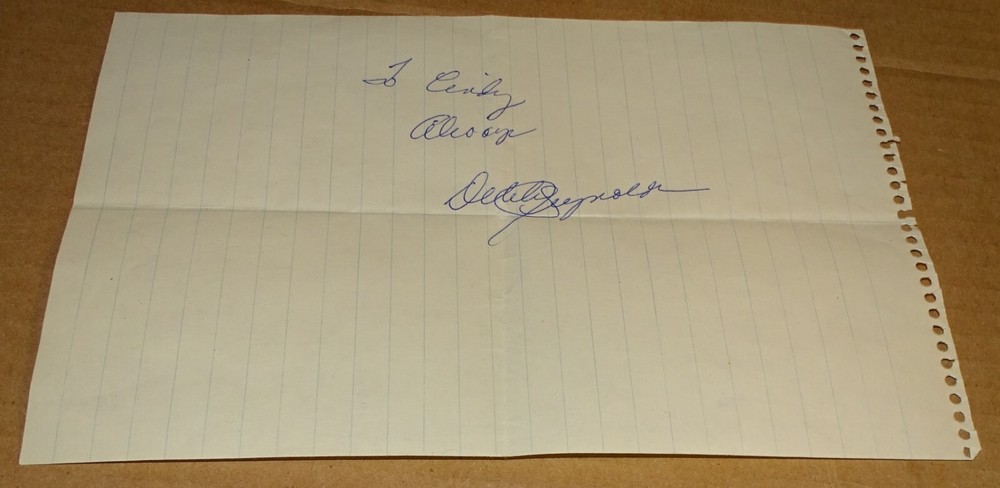 To Cindy
Always
Debbie Reynolds